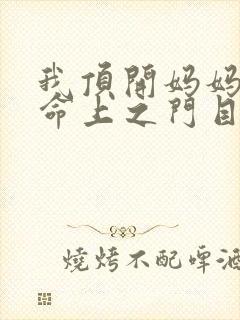 我頂開妈妈
命上之門目
燒烤不配啤酒